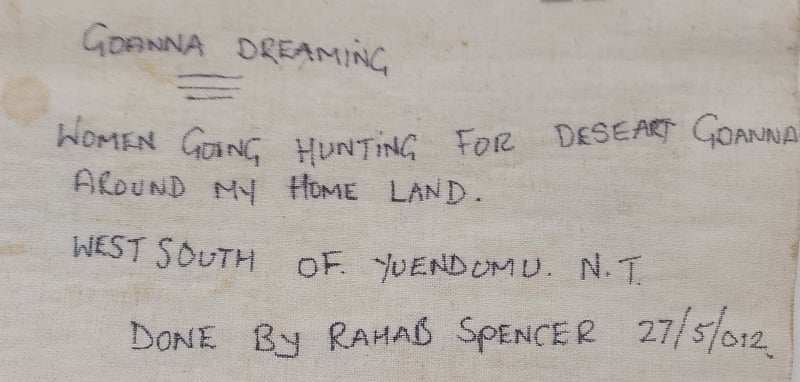 GOANNA DREAMING
WOMEN GOING HUNTING FOR DESEART GOANNA
AROUND MY HOME LAND.
WEST SOUTH OF. YUENDUMU. N.T.
DONE By RAHAB SPENCER 27/5/012.